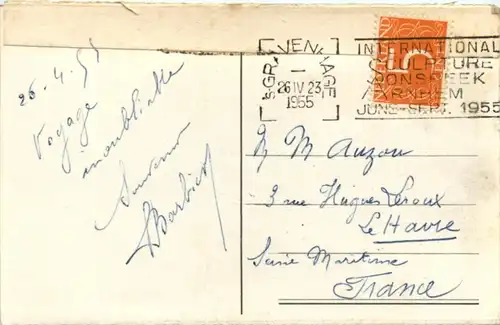 26-4-55
Voyage
inoubliable
Souvenir
'SGRAVENHAGE
26 IV 23
1955
INTERNATIONAL
SCULPTURE
SONSBEEK
ARNHEM
JUNE-SEPT. 1955
5
M M Auzou
3 rue Hugues Leroux
Le Havre
Seine Maritime
France